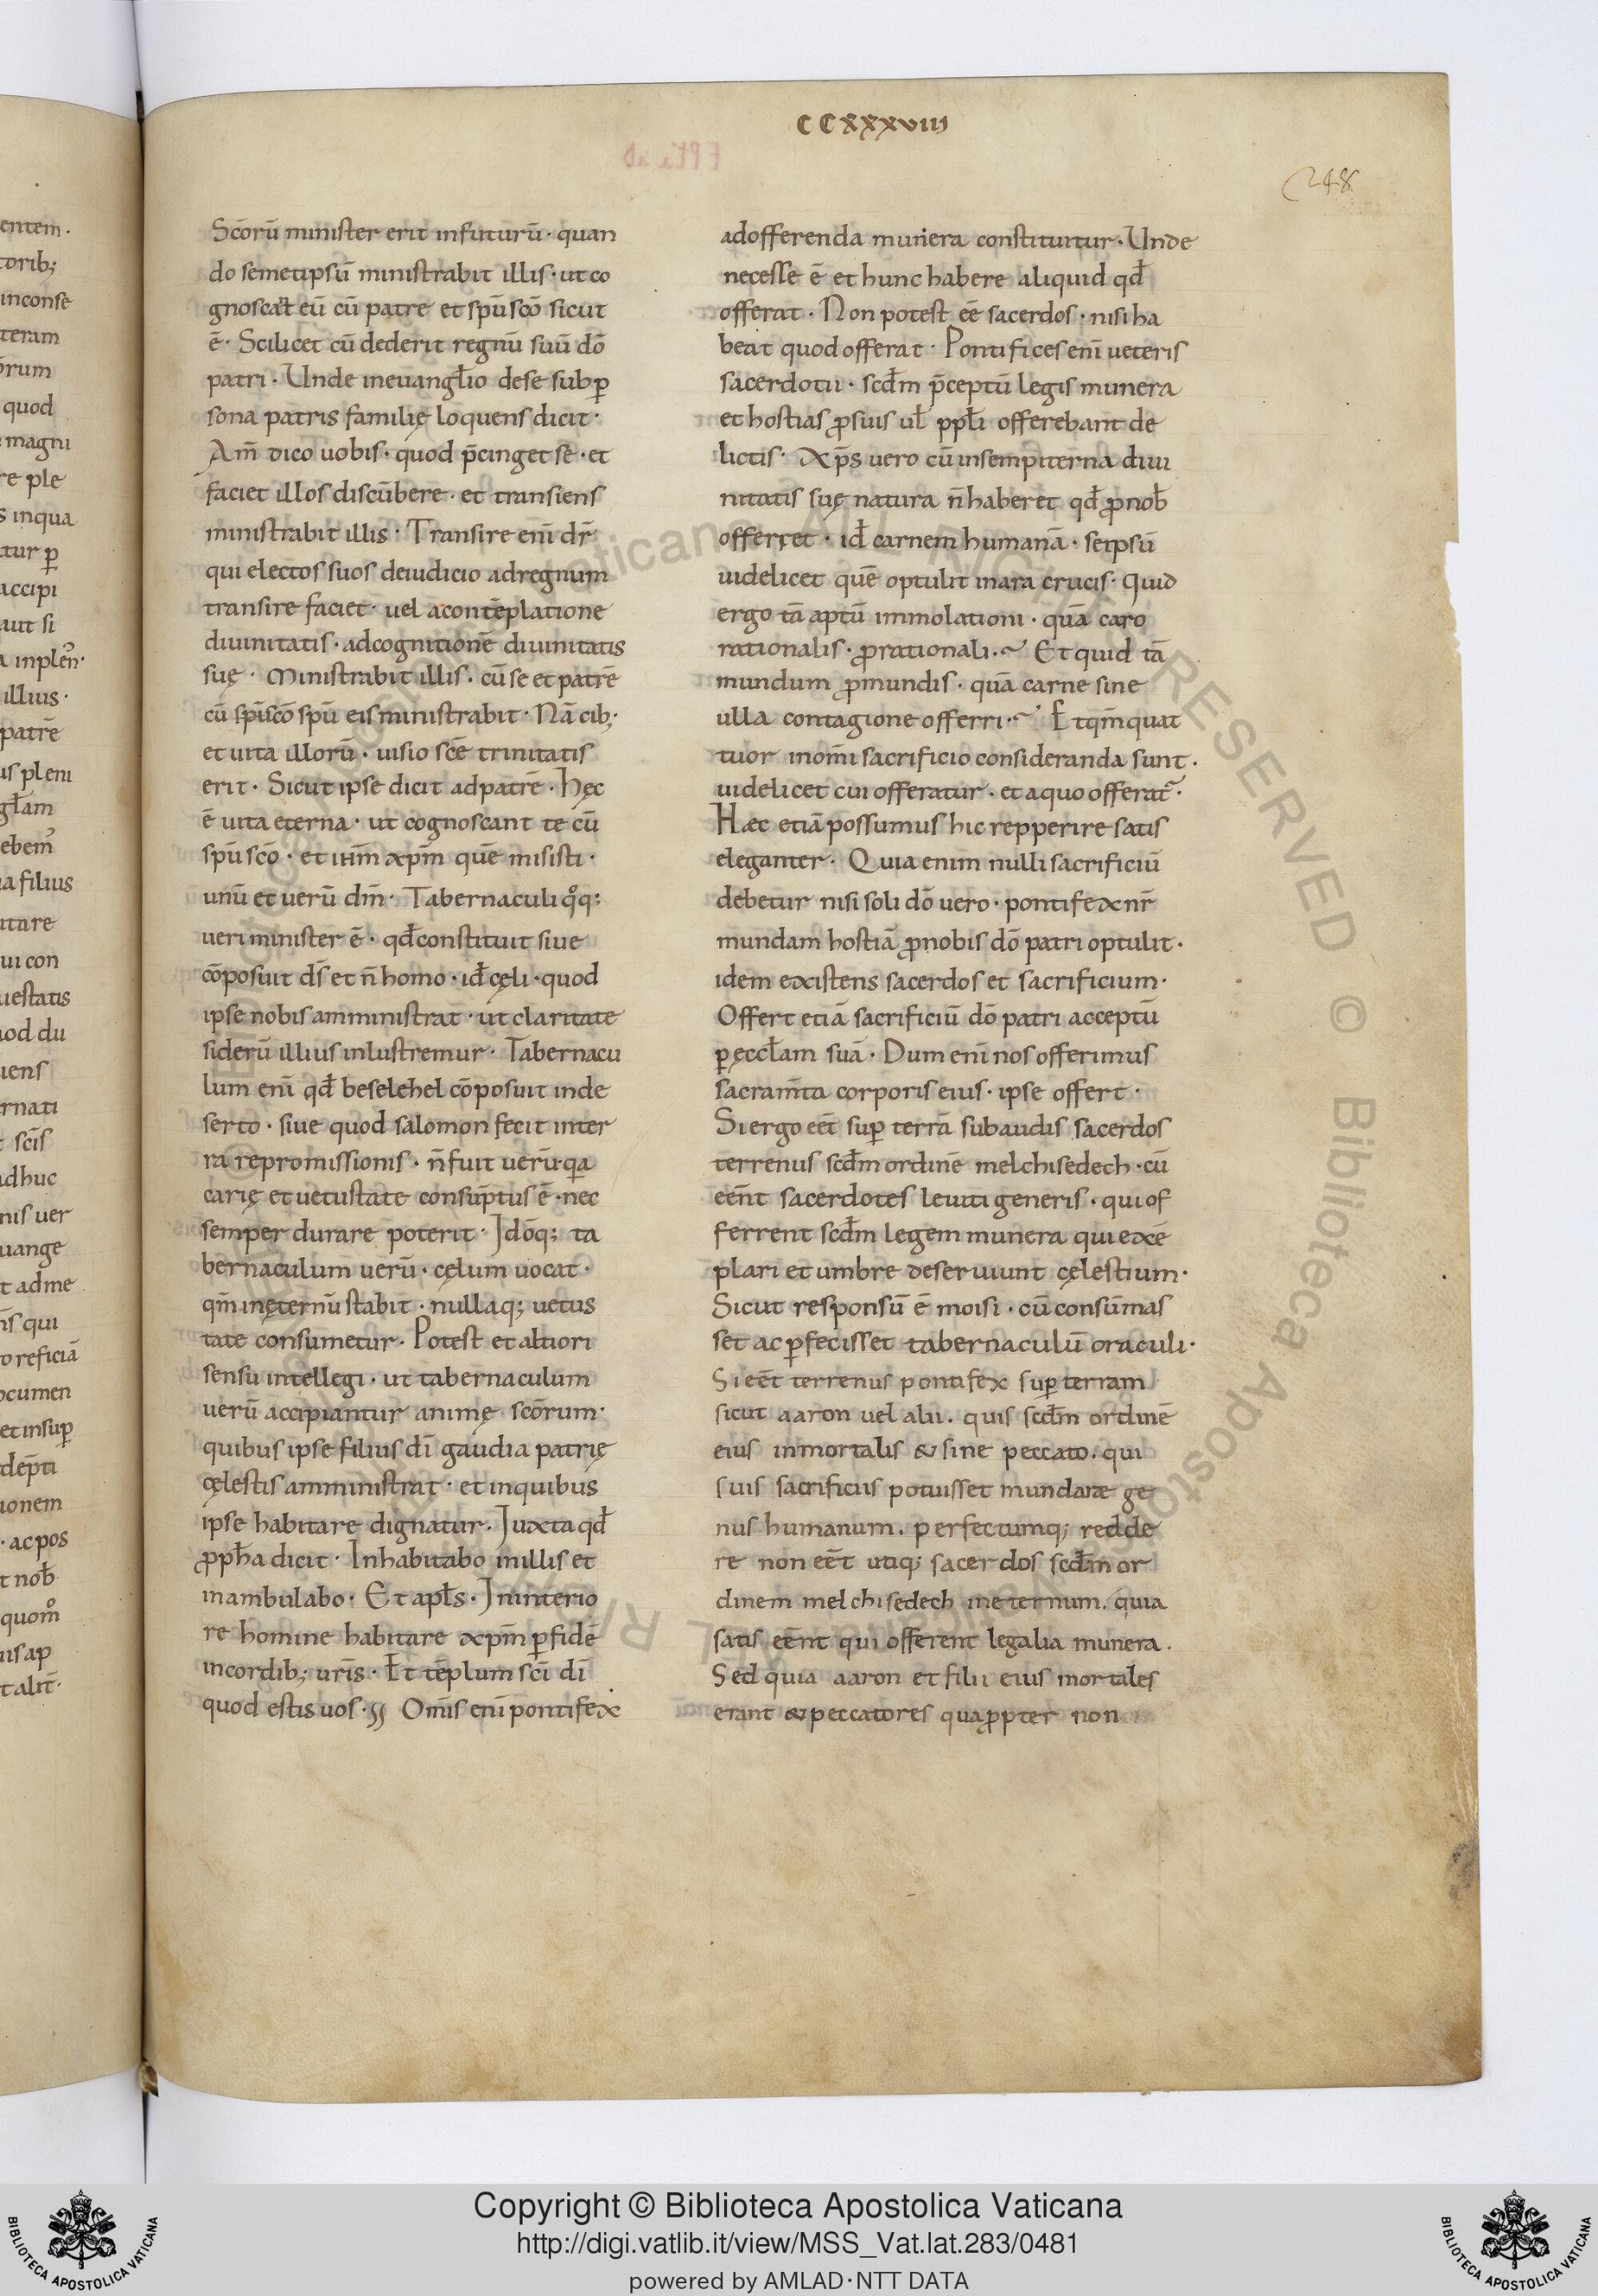 CCXXXVIII
248
Sc̄orū minister erit infuturū · quan
do semetipsū ministrabit illis · ut co
gnoscat eū cū patre et sp̄u sc̄o sicut
ē · Scilicet cū dederit regnū suū dō
patri · Unde ineuangƚio dese sub ꝑ
sona patris familię loquens dicit ·
Am̄ dico uobis · quod p̄cinget sē · et
faciet illos discūbere · et transiens
ministrabit illis · Transire enī dr̄
qui electos suos deiudicio adregnum
transire faciet · uel acontēplatione
diuinitatis · adcognitionē diuinitatis
suę · Ministrabit illis · cū se et patrē
cū sp̄iscō sp̄ū eis ministrabit · Nā cib;
et uita illorū · uisio scē trinitatis
erit · Sicut ipse dicit adpatrē · Hęc
ē uita eterna · ut cognoscant te cū
sp̄u sc̄o · et iħm xp̄m quē misisti ·
unū et uerū dm̄ · Tabernaculi qͦq;
ueri minister ē · qđ constituit siue
cōposuit ds̄ et n̄ homo · id̄ cęli · quod
ipse nobis amministrat · ut claritate
siderū illius inlustremur · Tabernacu
lum enī qđ beselehel cōposuit inde
serto · siue quod salomon fecit inter
ra repromissionis · n̄ fuit uerū · qa
carię et uetustate consūptus ē · nec
semper durare poterit · Idōq; ta
bernaculum uerū · cęlum uocat ·
qm̄ inęternū stabit · nullaq; uetus
tate consumetur · Potest et altiori
sensu intellegi · ut tabernaculum
uerū accipiantur animę sc̄orum ·
quibus ipse filius dī gaudia patrię
cęlestis amministrat · et inquibus
ipse habitare dignatur · Iuxta qđ
ꝓpħa dicit · Inhabitabo inillis et
inambulabo · Et apƚs · Ininterio
re homine habitare xp̄m ꝑ fidē
incordib; ur̄is · Et tēplum sc̄i dī
quod estis uos · Om̄is enī pontifex
adofferenda munera constituitur · Unde
necesse ē et hunc habere aliquid qđ
offerat · Non potest eē sacerdos · nisi ha
beat quod offerat · Pontifices enī ueteris
sacerdotii · scđm p̄ceptū legis munera
et hostias ꝓsuis uƚ ppƚi offerebant de
lictis · Xp̄s uero cū insempiterna diui
nitatis suę natura n̄ haberet qđ ꝓ noƀ
offerret · id̄ carnem humanā · seipsū
uidelicet quē optulit inara crucis · Quid
ergo tā aptū immolationi · quā caro
rationalis · ꝓ rationali · ~ Et quid tā
mundum ꝓmundis · quā carne sine
ulla contagione offerri · ~ Et qm̄ quat
tuor inom̄i sacrificio consideranda sunt ·
uidelicet cui offeratur · et aquo offerat᷑ ·
Hæc etiā possumus hic repperire satis
eleganter · Quia enim nulli sacrificiū
debetur nisi soli dō uero · pontifex nr̄
mundam hostiā ꝓnobis dō patri optulit ·
idem existens sacerdos et sacrificium ·
Offert etiā sacrificiū dō patri acceptū
ꝑ ęccƚam suā · Dum enī nos offerimus
sacram̄ta corporis eius · ipse offert ·
Si ergo eēt suꝑ terrā subaudis sacerdos
terrenus scđm ordinē melchisedech · cū
eēnt sacerdotes leuiti generis · qui of
ferrent scđm legem munera qui exē
plari et umbre deseruiunt cęlestium ·
Sicut responsū ē moisi · cū consūmas
set ac ꝑfecisset tabernaculū oraculi ·
Si eēt terrenus pontifex suꝑ terram
sicut aaron uel alii . quis scđm ordinē
eius inmortalis & sine peccato . qui
suis sacrificiis potuisset mundare ge
nus humanum . perfectumq; redde
re non eēt utiq; sacerdos scđm or
dinem melchisedech ineternum . quia
satis eēnt qui offerent legalia munera .
Sed quia aaron et filii eius mortales
erant & peccatores quaꝓpter non
entem ·
torib;
inconse
teram
orum
quod
magni
re ple
s inqua
tur ꝑ
accipi
aut si
illius ·
patrē
us pleni
gƚam
a filius
itare
ui con
uestatis
uod du
iens
ernati
sc̄is
adhuc
nis uer
uange
t adme
is qui
o reficiā
ocumen
et insuꝑ
depti
ionem
· ac pos
t noƀ
quom̊
uis ap
Copyright © Biblioteca Apostolica Vaticana
http://digi.vatlib.it/view/MSS_Vat.lat.283/0481
powered by AMLAD·NTT DATA
BIBLIOTECA APOSTOLICA VATICANA
BIBLIOTECA APOSTOLICA VATICANA